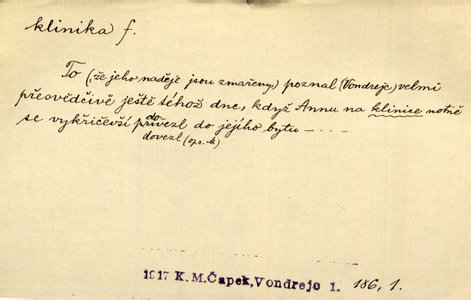 klinika f.
To (, že jeho naděje jsou zmařeny,) poznal (Vondrejc) velmi
přesvědčivě ještě téhož dne, když Annu na klinice notně
se vykřičevší přivezl do jejího bytu – . . .
do
dovezl (opr. -k)
1917 K.M.Čapek,Vondrejc 1. 186, 1.